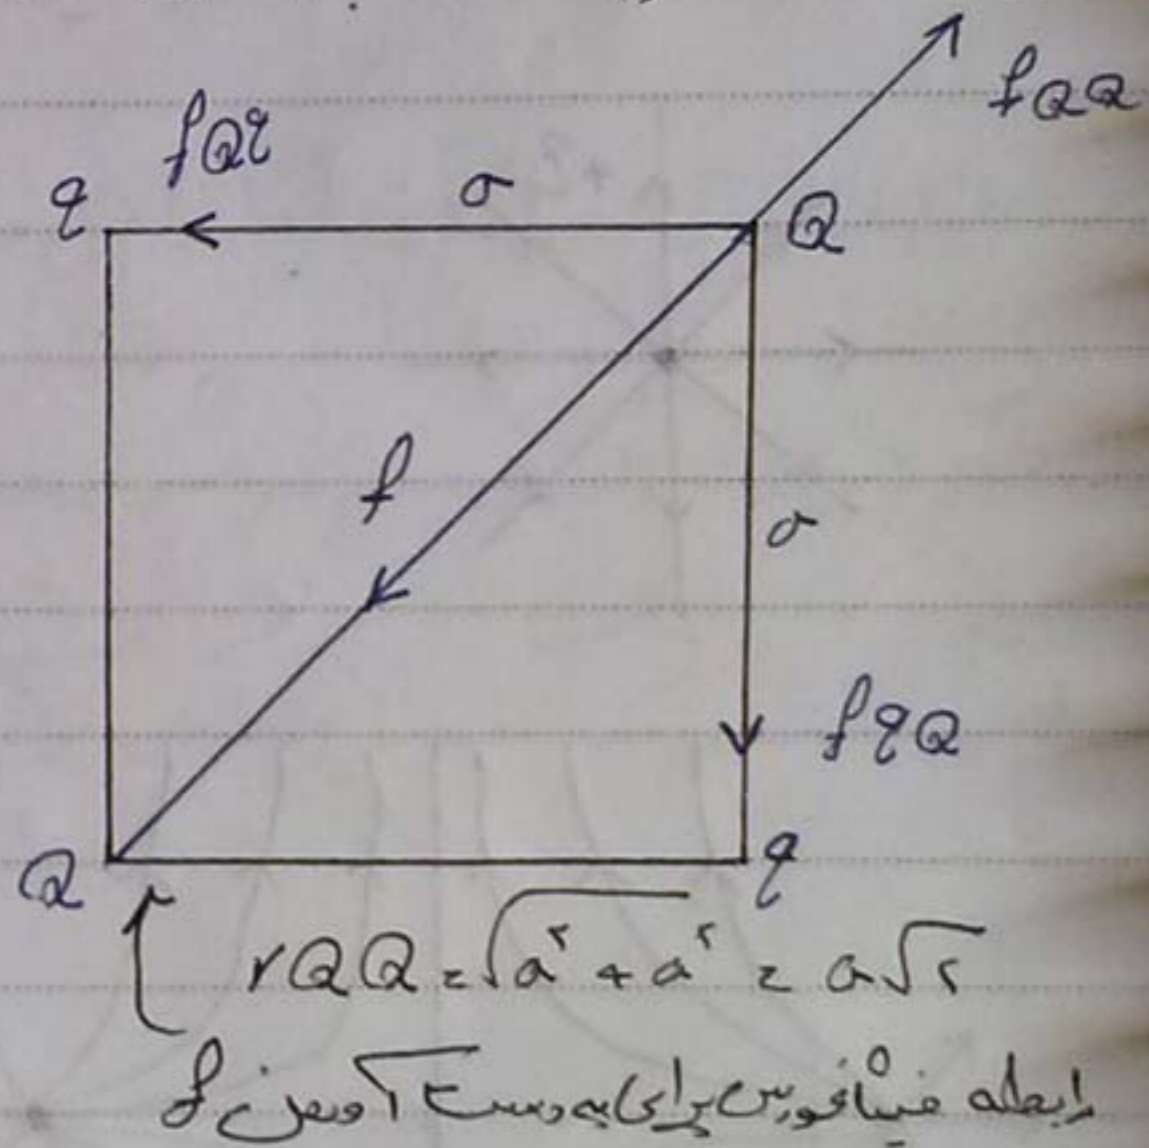 fQQ
fQq
q
a
Q
f
a
fqQ
Q
q
rQQ = √a² + a² = a√۲
رابطه فیثاغورس برای به دست آوردن f